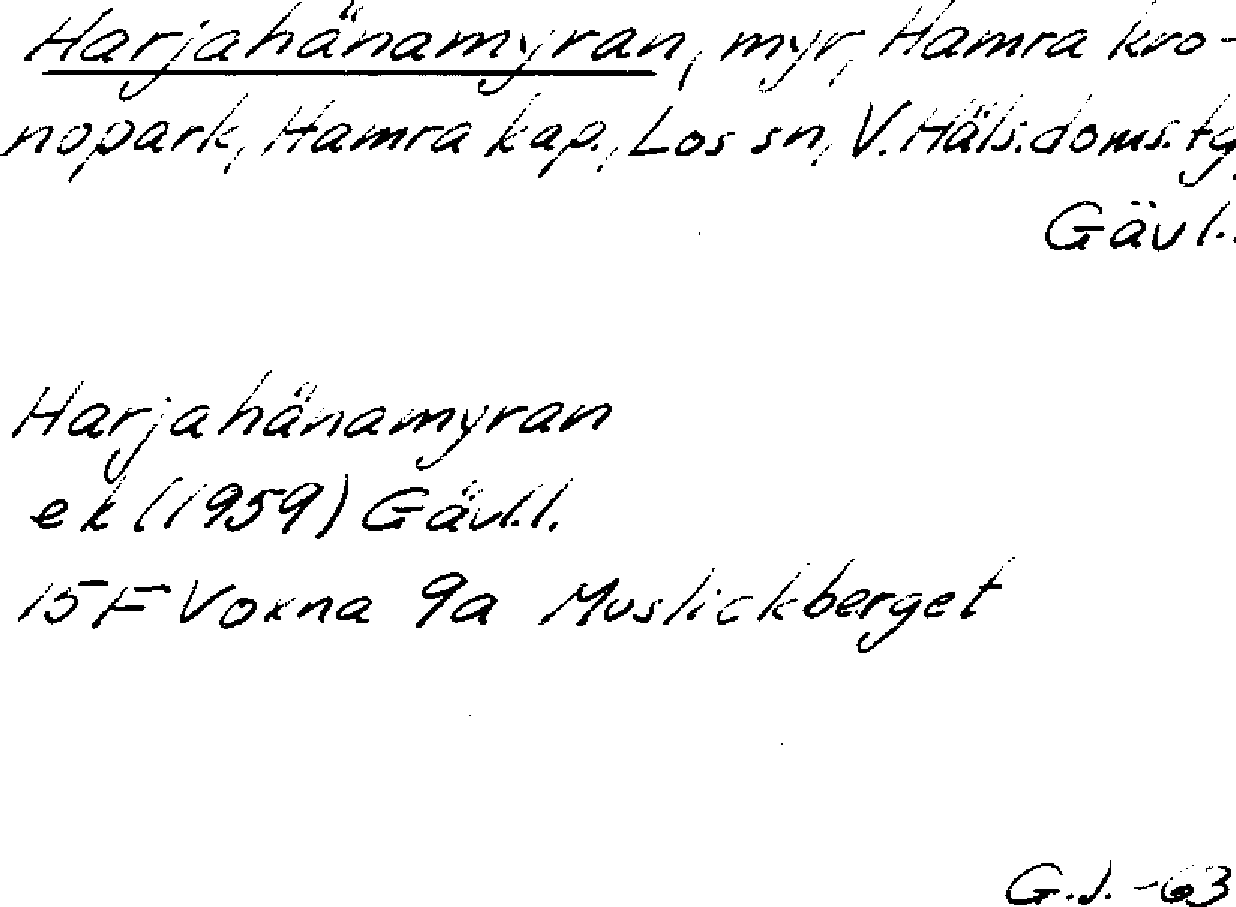 Harjahänamyran, myr, Hamra kro-
nopark, Hamra kap., Los sn, V. Häls. doms. tg
Gävl.
Harjahänamyran
ek (1959) Gävl.l.
15F Voxna 9a Muslickberget
G.J. -63